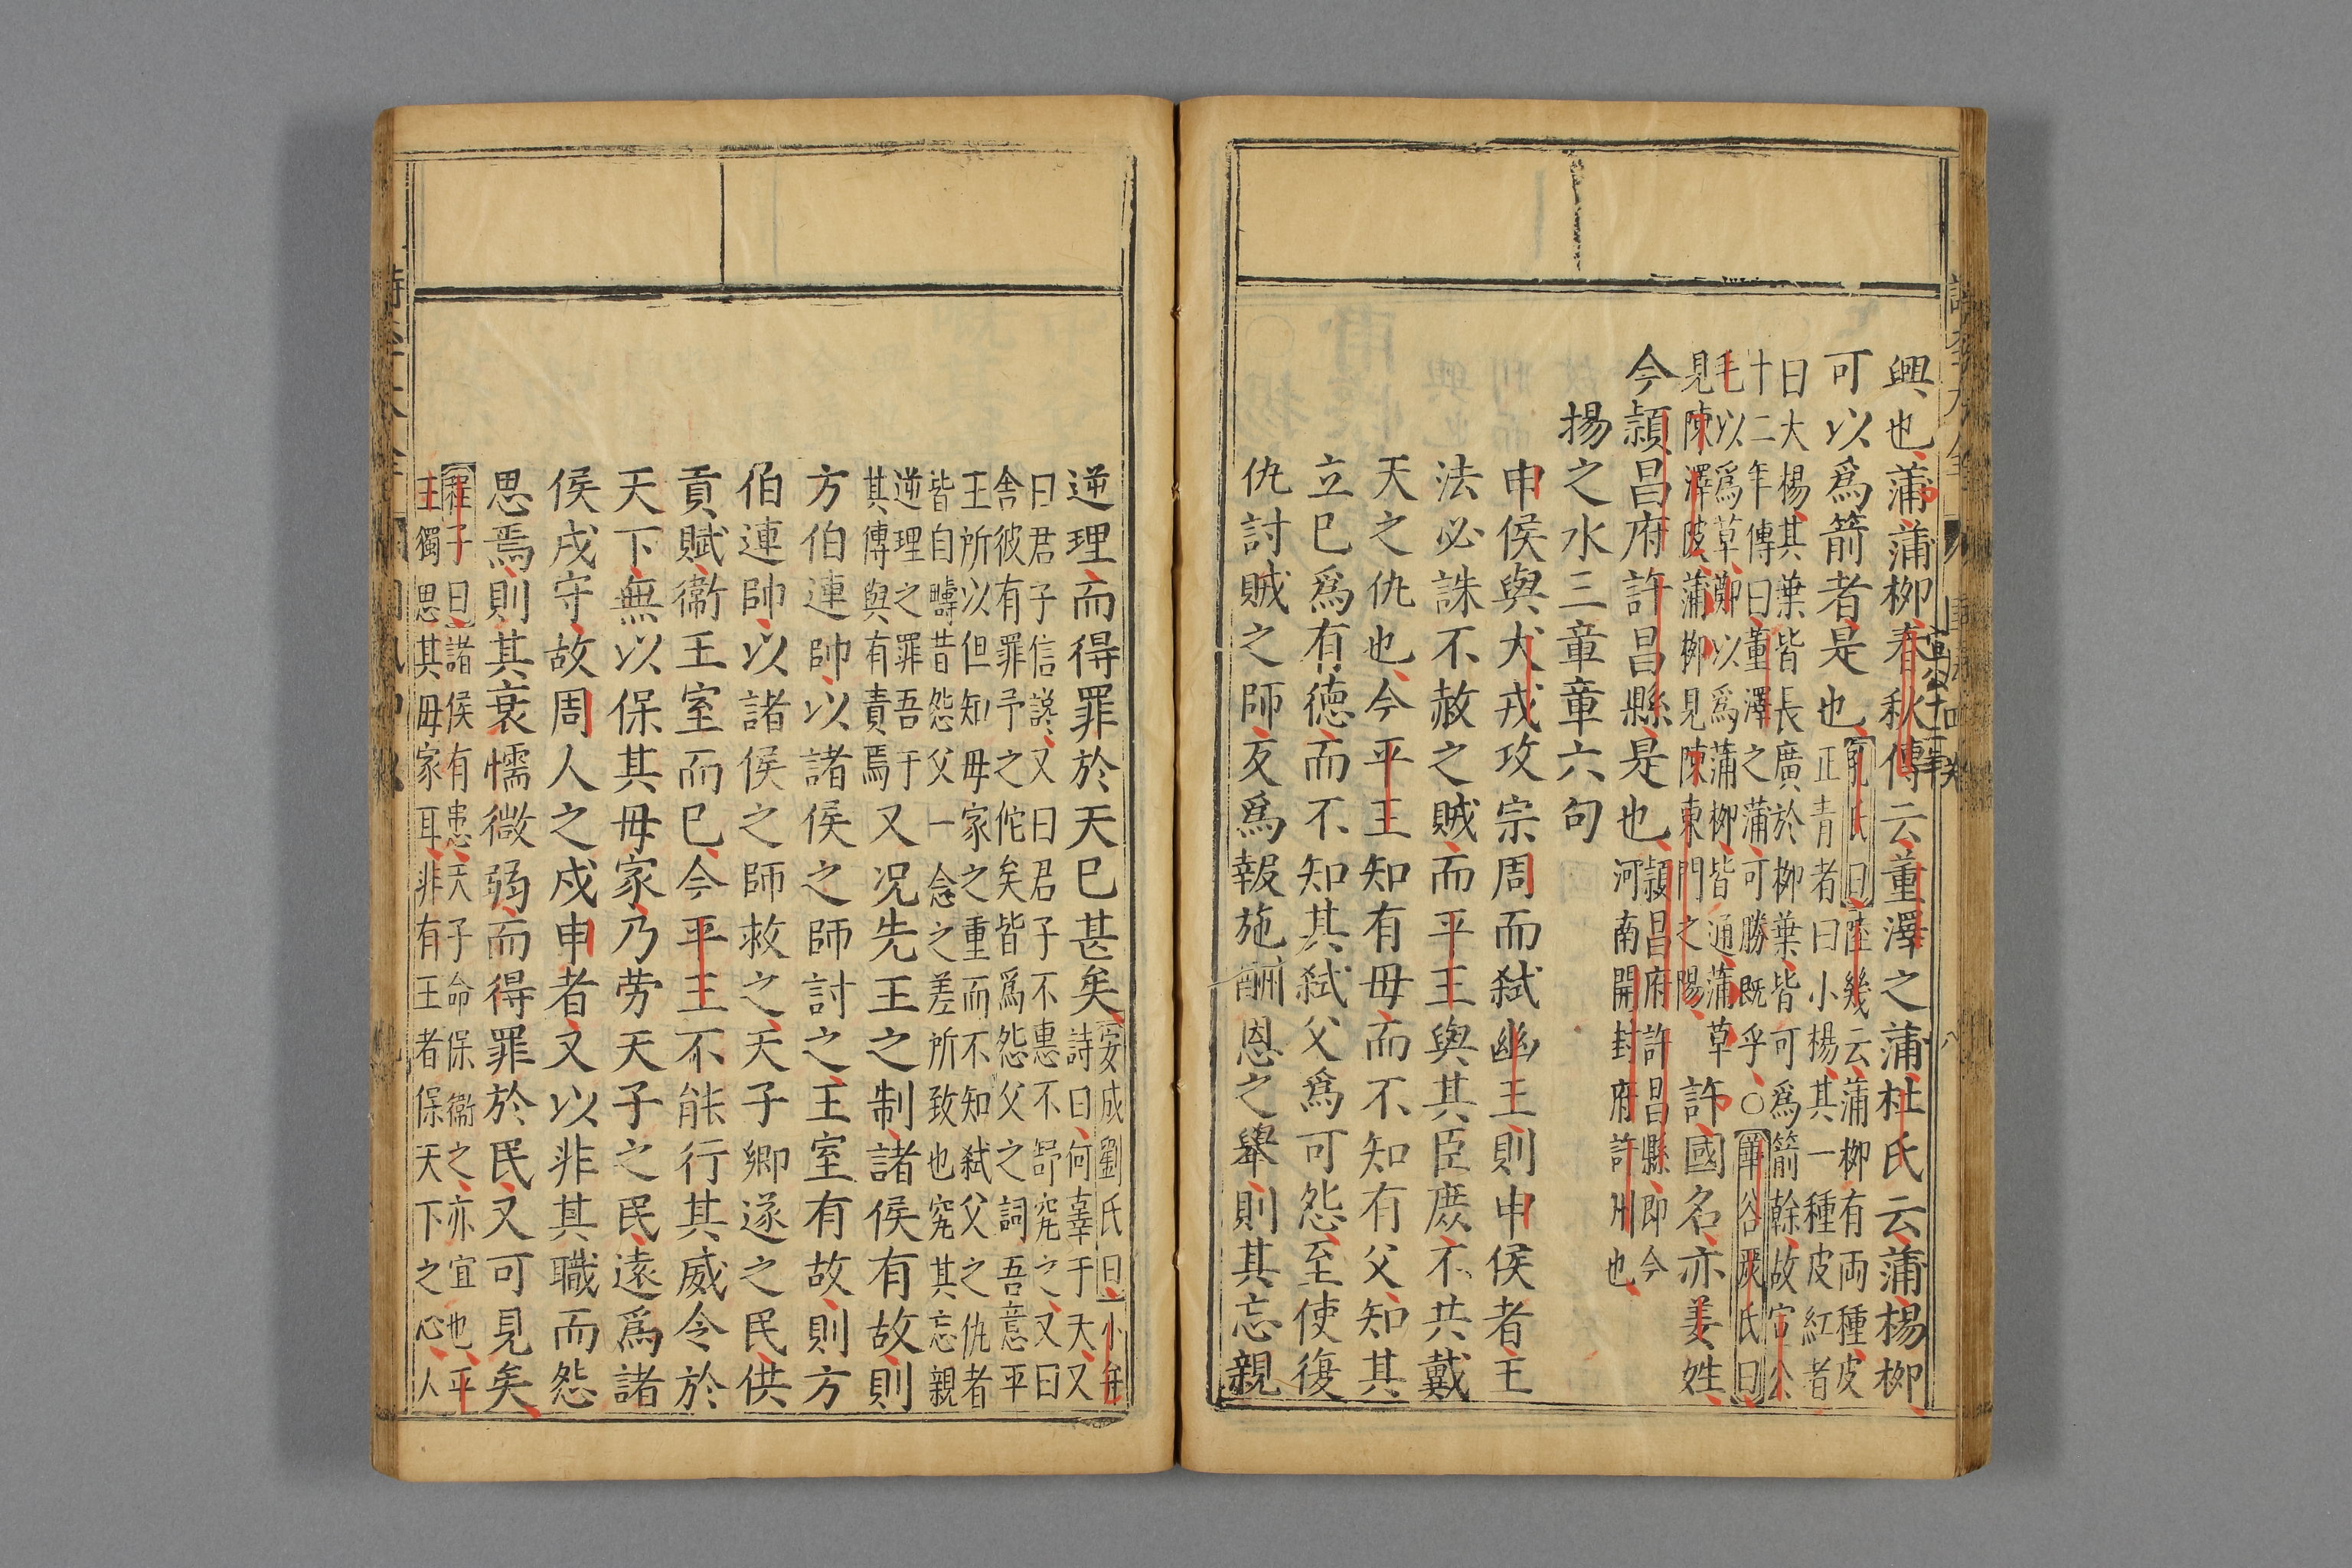 興也蒲蒲柳春秋傳云董澤之蒲杜氏云蒲楊柳
可以爲箭者是也孔氏曰陸幾云蒲柳有兩種皮
正青者曰小楊其一種皮紅者
曰大楊其葉皆長廣於柳葉皆可爲箭幹故宣公
十二年傳曰董澤之蒲可勝既乎○華谷嚴氏曰
毛以爲草鄭以爲蒲柳皆通蒲草
見陳澤陂蒲柳見陳東門之陽許國名亦姜姓
今潁昌府許昌縣是也潁昌府許昌縣即今
河南開封府許州也
揚之水三章章六句
申侯與犬戎攻宗周而弑幽王則申侯者王
法必誅不赦之賊而平王與其臣庶不共戴
天之仇也今平王知有母而不知有父知其
立已爲有德而不知其弑父爲可怨至使復
仇討賊之師反爲報施酬恩之舉則其忘親
逆理而得罪於天已甚矣安成劉氏曰小弁
詩曰何辜于天又
曰君子信讒又曰君子不惠不舒究之又曰
舍彼有罪予之佗矣皆爲怨父之詞吾意平
王所以但知母家之重而不知弑父之仇者
皆自疇昔怨父一念之差所致也究其忘親
逆理之罪吾于
其傳與有責焉又况先王之制諸侯有故則
方伯連帥以諸侯之師討之王室有故則方
伯連帥以諸侯之師救之天子鄉遂之民供
貢賦衞王室而已今平王不能行其威令於
天下無以保其母家乃劳天子之民遠爲諸
侯戍守故周人之戍申者又以非其職而怨
思焉則其衰懦微弱而得罪於民又可見矣
程子曰諸侯有患天子命保衞之亦宜也平
王獨思其母家耳非有王者保天下之心人